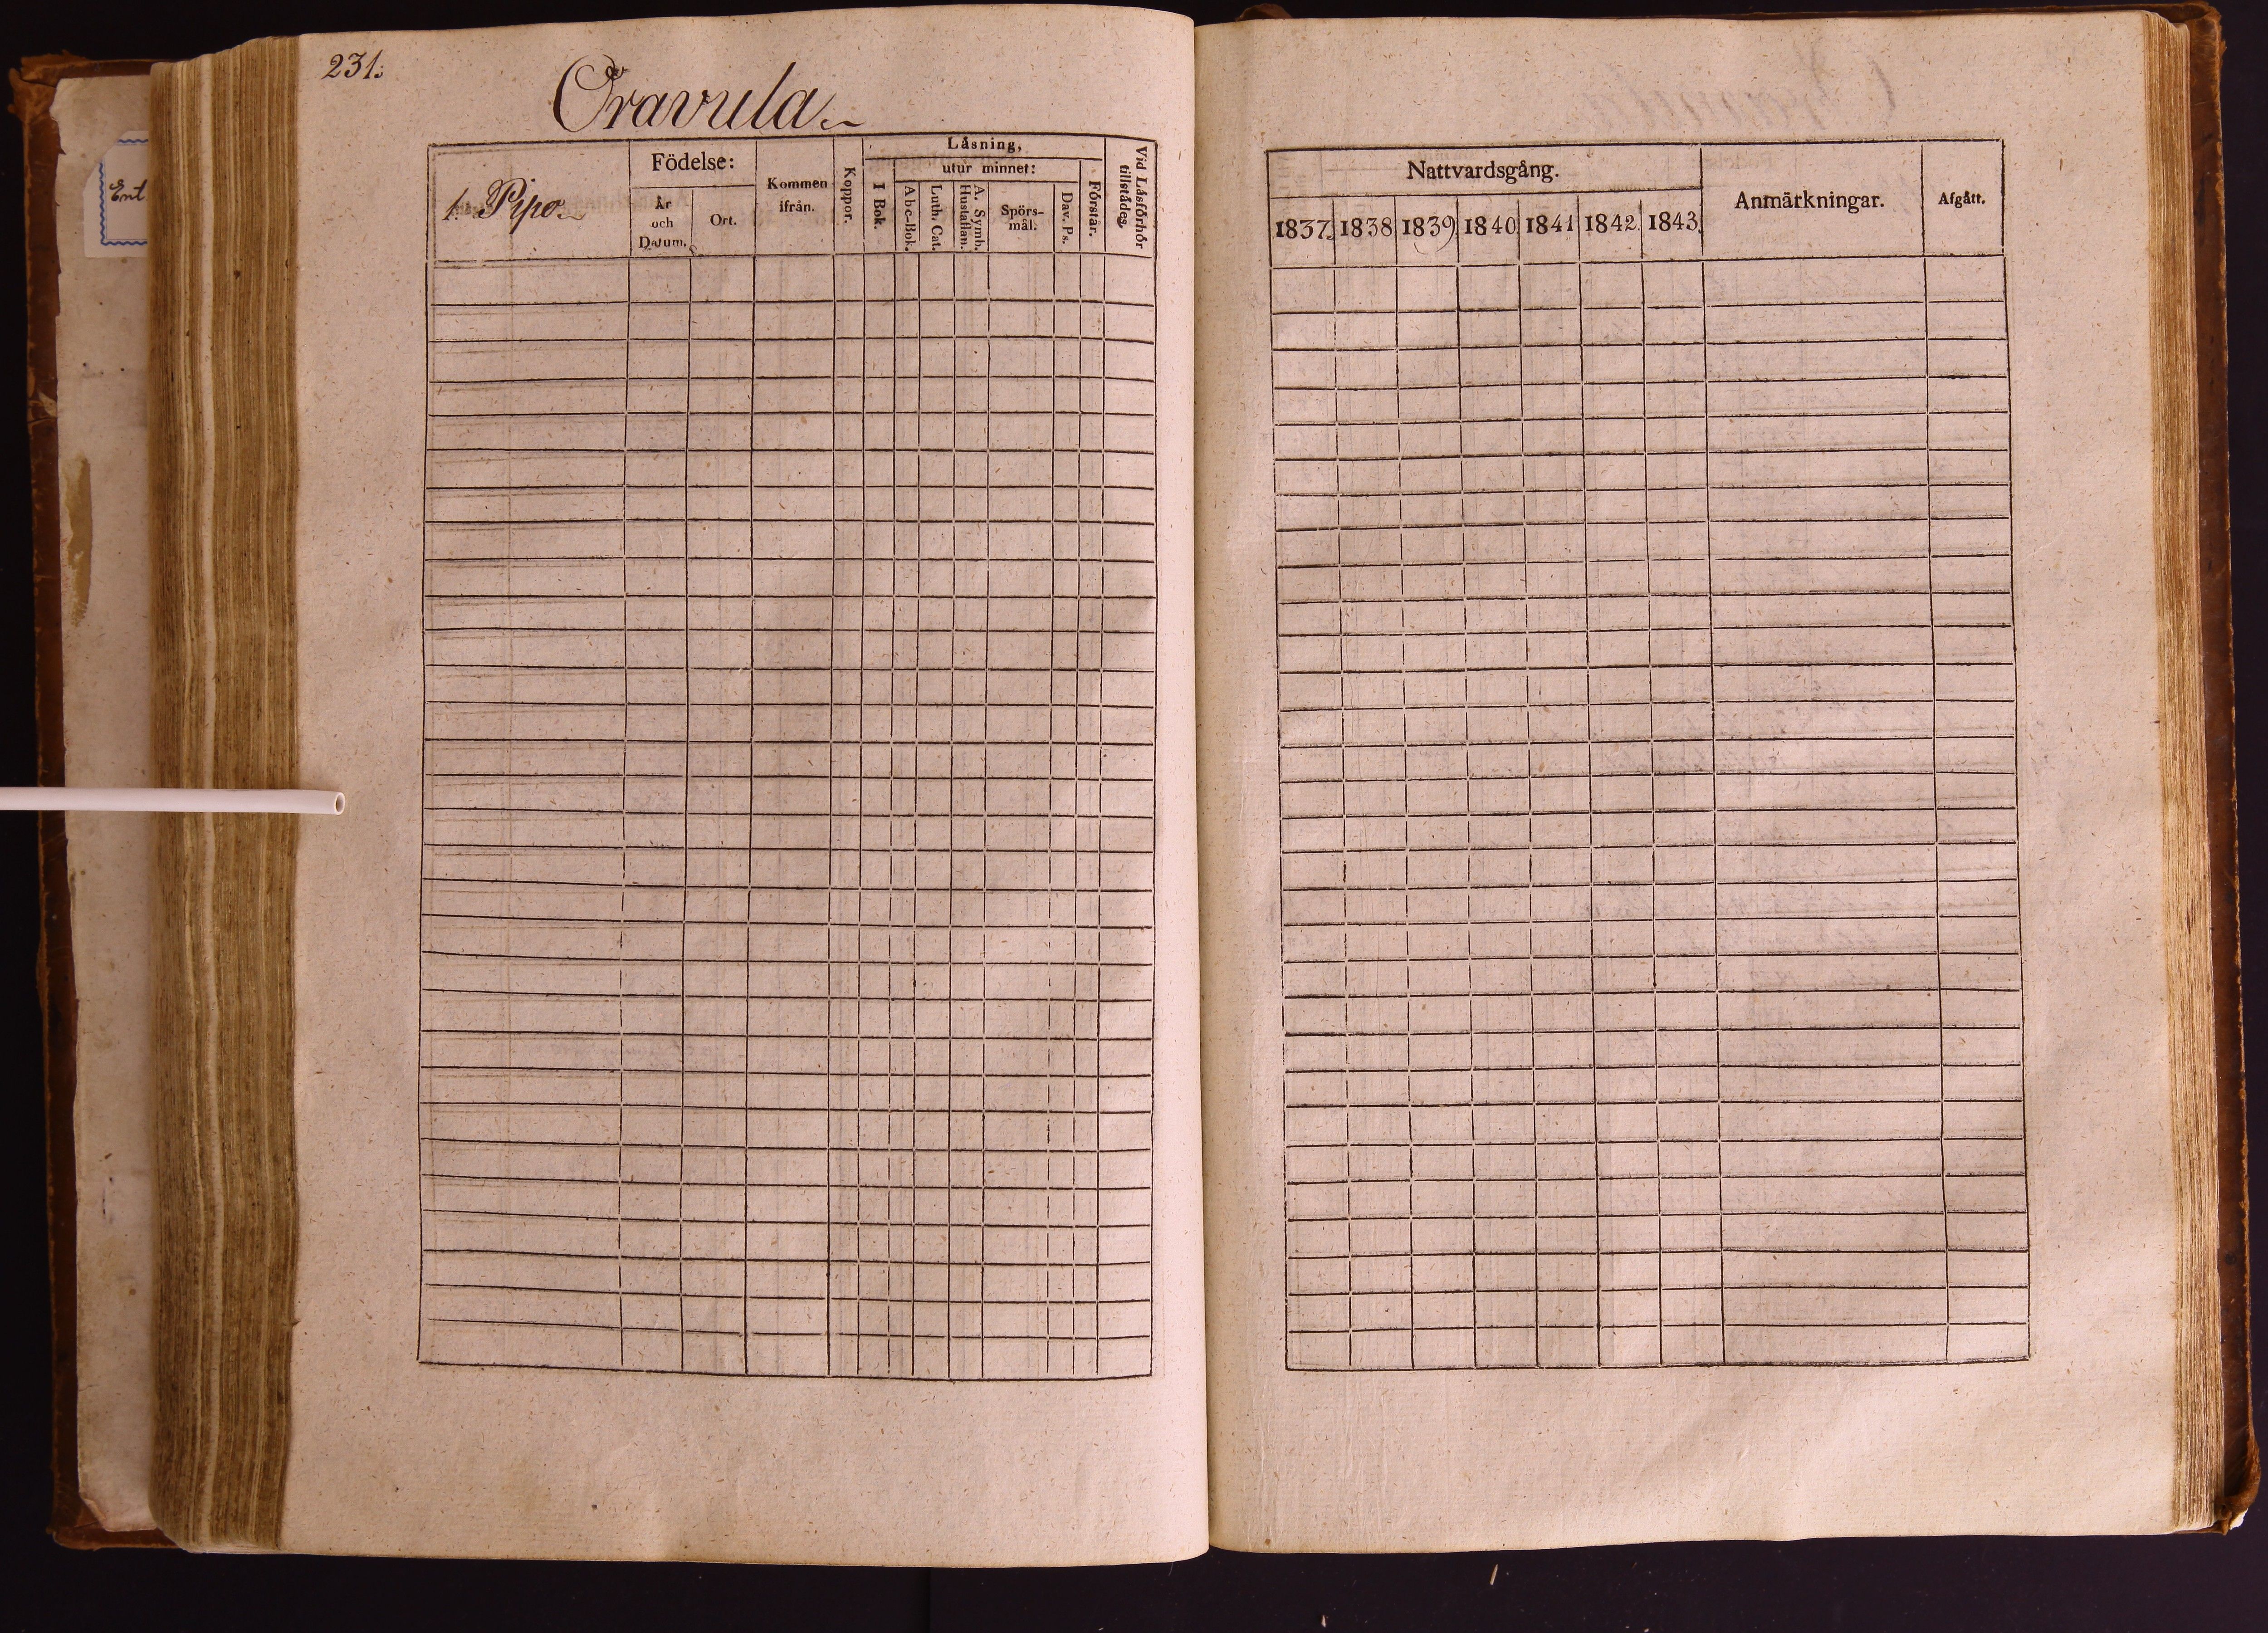 231.
Oravula.
1. Pipo.
Födelse:
År
och
Datum.
Ort.
Kommen
ifrån.
Koppor.
Låsning,
I Bok.
utur minnet:
Abc-Bok.
Luth. Cat.
A. Symb.
Hustaflan.
Spörs-
mål.
Dav. Ps.
Förstår.
Vid Låsförhör
tillstådes.
Nattvardsgång.
1837. 1838 1839 1840 1841 1842 1843
Anmärkningar.
Afgått.
Ent